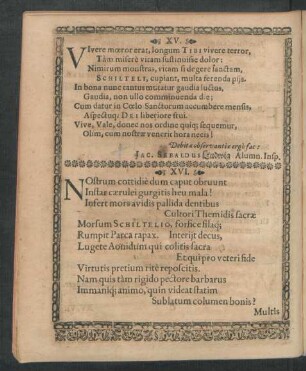 XV.
Vivere mœror erat, longum TIBI vivere terror,
Tàm miserè vitam sustinuisse dolor:
Nimirum monstras, vitam si degere sanctam,
SCHILTELI, cupiant, multa ferenda pijs.
In bona nunc tantùs mutatur gaudia luctus,
Gaudia, non ullo comminuenda die;
Cum datur in Cœlo Sanctorum accumbere mensis,
Aspectuq; DEI liberiore frui.
Vive, Vale, donec nos ordine quisq; sequemur,
Olim, cum nostræ venerit hora necis!
Debitæ observantiæ ergò fac:
JAC. SEBALDUS Alumn. Insp.
XVI.
NOstrum cottidiè dum caput obruunt
Instar cærulei gurgitis heu mala!
Infert mors avidis pallida dentibus
Cultori Themidis sacræ
Morsum SCHILTELIO, forfice filaq;
Rumpit Parca rapax. Interijt decus,
Lugete Aonidum qui colitis sacra
Et qui pro veteri fide
Virtutis pretium ritè reposcitis.
Nam quis tàm rigido pectore barbarus
Immaniq; animo, quin videat statim
Sublatum columen bonis?
Multis